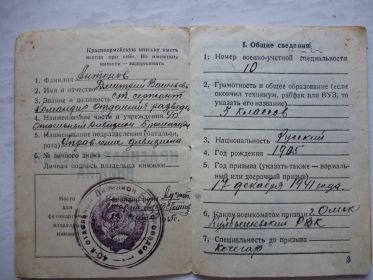 Красноармейскую книжку иметь
всегда при себе. Не имеющих
книжки — задерживать
1. Фамилия Антонов
2. Имя и отчество Дмитрий Васильевич
3. Звание и должность ст. сержант
командир отделения разведки
4. Наименование части и учреждения 40
5. Наименование подразделения (батальон,
рота) Управление дивизиона
6. № личного знака
Личная подпись владельца книжки
Место
для
фотокарточки
владельца
книжки
I. Общие сведения
1. Номер военно-учетной специальности
10
2. Грамотность и общее образование (если
окончил техникум, рабфак или ВУЗ, то
указать его название)
5 классов
3. Национальность Русский
4. Год рождения 1905
5. Год призыва (указать также — нормаль-
ный или досрочный призыв)
17 декабря 1941 года.
6. Каким военкоматом призван г. Омск
Куйбышевский РВК
7. Специальность до призыва
Кочегар
3